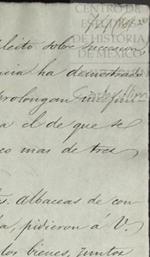 CENTRO DE
ESTUDIOS
DE HISTORIA
DE MÉXICO
Carlos Slim
pleito sobre sucesion
ncia ha demostrado
prolongan
a el de que se
co mas de tres
s. albaceas de con
a, pidieron á V.
los bienes, juntos